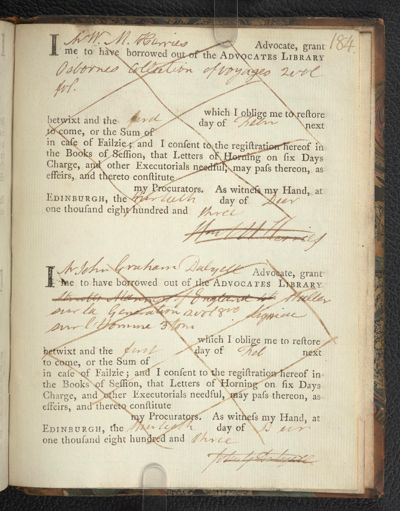 184
I Mr W. M. Herries Advocate, grant
me to have borrowed out of the ADVOCATES LIBRARY
Osbornes Collection of Voyages 2 vol
fol.
which I oblige me to reſtore
betwixt and the day of next
to come, or the Sum of
in caſe of Failzie; and I conſent to the regiſtration hereof in
the Books of Seſſion, that Letters of Horning on ſix Days
Charge, and other Executorials needful, may paſs thereon, as
effeirs, and thereto conſtitute
my Procurators. As witneſs my Hand, at
EDINBURGH, the day of Decr
one thouſand eight hundred and three
I Mr John Graham Dalyell Advocate, grant
me to have borrowed out of the ADVOCATES LIBRARY
of England Haller
sur la Generation 2 vol 8vo
sur l'Homme 3 tom
which I oblige me to reſtore
betwixt and the first day of Feb next
to come, or the Sum of
in caſe of Failzie; and I conſent to the regiſtration hereof in
the Books of Seſſion, that Letters of Horning on ſix Days
Charge, and other Executorials needful, may paſs thereon, as
effeirs, and thereto conſtitute
my Procurators. As witneſs my Hand, at
EDINBURGH, the day of Decr
one thouſand eight hundred and three